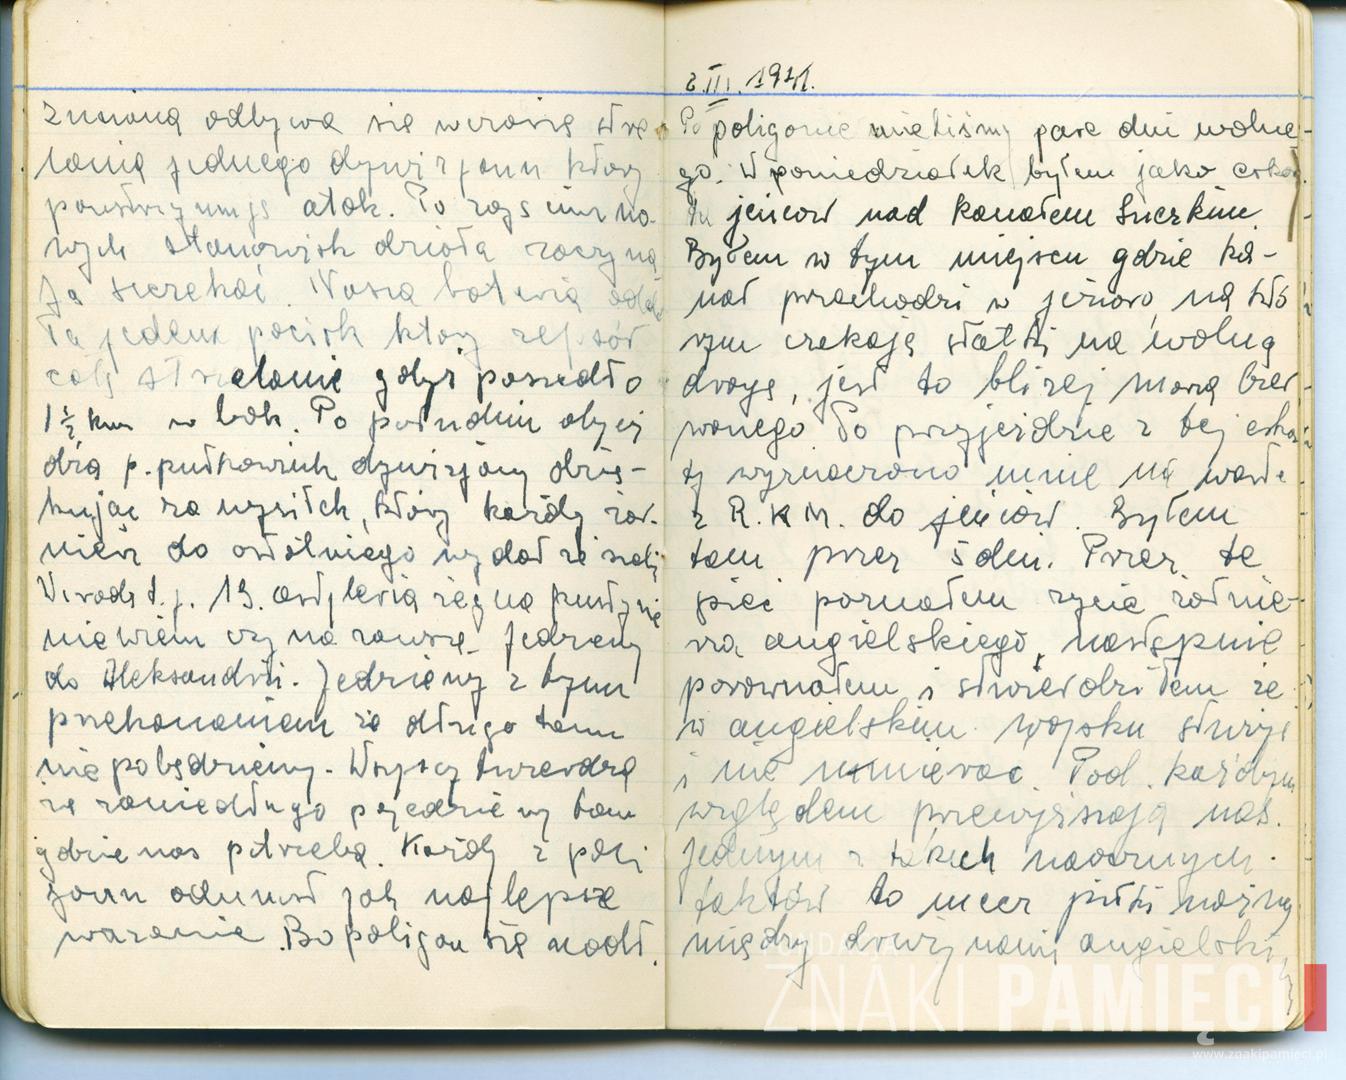 zmianą odbywa się w czasie strze
lania jednego dywizjonu który
powstrzymuje atak. Po zajęciu no-
wych stanowisk działa zaczyna
ją szczekać. Nasza bateria odda
ła jeden pocisk który zepsuł
całe strzelanie gdyż poszedł o
1½ km w bok. Po południu objeż
dża p. pułkownik dywizjony dzię-
kując za wysiłek, który każdy żoł-
nierz do ostatniego wydał ze siebie
W środę t.j. 19. pustynię
nie wiem czy na zawsze. Jedziemy
do Aleksandrii. Jedziemy z tym
przekonaniem że długo tam
nie pobędziemy. Wszyscy twierdzą
że zaniedługo pojedziemy tam
gdzie nas potrzeba. Każdy z poli
gonu odniósł jak najlepsze
wrażenie. Bo poligon się udał.
2.III.1941.
Po poligonie mieliśmy parę dni wolne-
go. W poniedziałek byłem jako eskor
ta jeńców nad Kanałem Sueskim
Byłem w tym miejscu gdzie ka-
nał przechodzi w jezioro, na któ
rym czekają statki na wolną
drogę, jest to bliżej morza Czer-
wonego. Po przyjeździe z tej eskor
ty wyznaczono mnie na wartę
z R.K.M. do jeńców. Byłem
tam przez 5 dni. Przez te
pięć poznałem życie żołnie-
rza angielskiego, następnie
porównałem i stwierdziłem że
w angielskim wojsku służyć
i nie umierać. Pod każdym
względem przewyższają nas.
Jednym z takich naocznych
faktów to mecz piłki nożnej
między drużynami angielski
FUNDACJA
ZNAKI PAMIĘCI
www.znakipamieci.pl